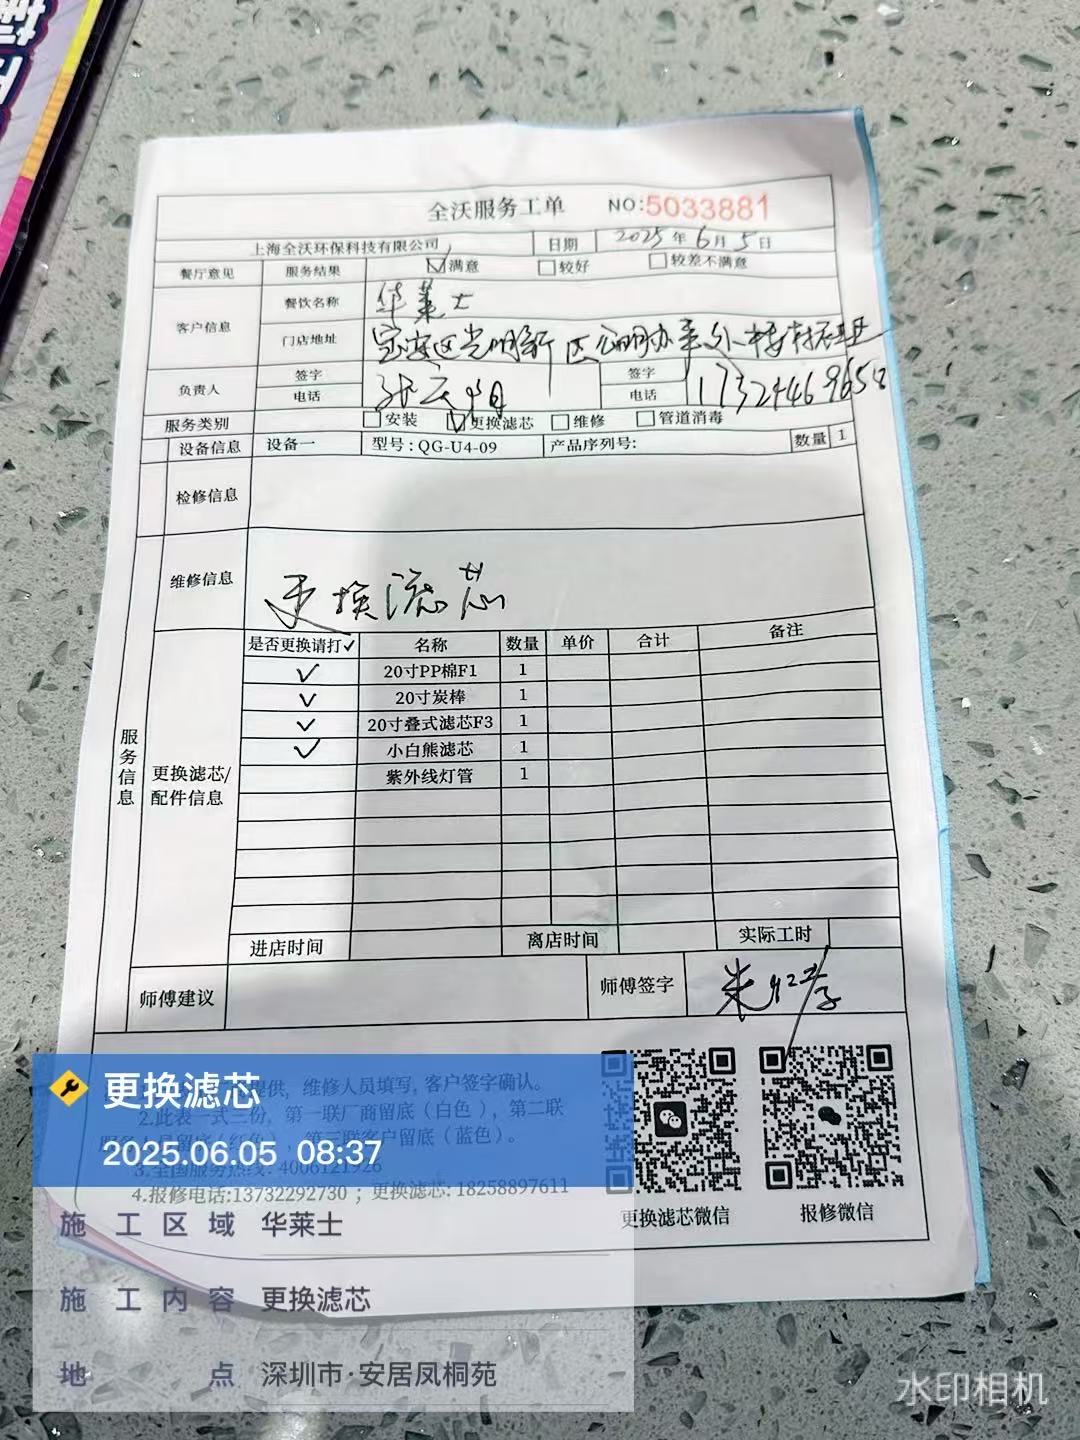 全沃服务工单 NO:5033881
上海全沃环保科技有限公司 日期 2025年6月5日
餐厅意见 服务结果 满意 较好 较差不满意
客户信息 餐饮名称 华莱士
门店地址 宝安区光明新区公明办事处
负责人 签字 签字
电话 电话 17324469658
服务类别 安装 更换滤芯 维修 管道消毒
设备信息 设备一 型号:QG-U4-09 产品序列号: 数量 1
检修信息
维修信息 更换滤芯
服务信息
更换滤芯/配件信息
是否更换请打✓ 名称 数量 单价 合计 备注
✓ 20寸PP棉F1 1
✓ 20寸炭棒 1
✓ 20寸叠式滤芯F3 1
✓ 小白熊滤芯 1
紫外线灯管 1
进店时间 离店时间 实际工时
师傅建议 师傅签字
提供，维修人员填写，客户签字确认。
2.此表一式三份，第一联厂商留底（白色），第二联
第三联客户留底（蓝色）。
3.全国服务热线: 4006121926
4.报修电话:13732292730；更换滤芯:18258897611
更换滤芯微信 报修微信
更换滤芯
2025.06.05 08:37
施工区域 华莱士
施工内容 更换滤芯
地点 深圳市·安居凤桐苑
水印相机